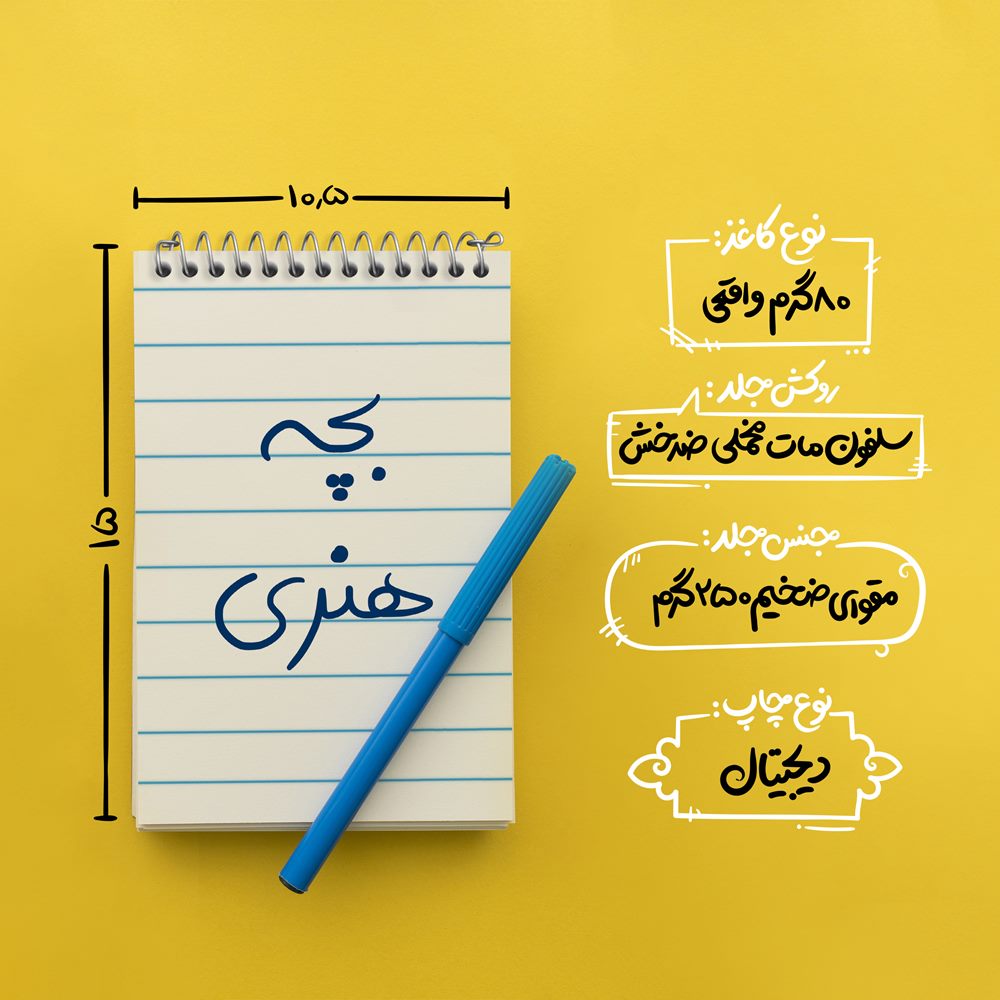 ۱۰,۵
۱۵
بچه
هنری
نوع کاغذ:
۸۰گرم واقعی
روکش جلد:
سلفون مات مخملی ضدخش
جنس جلد:
مقوای ضخیم ۲۵۰گرم
نوع چاپ:
دیجیتال